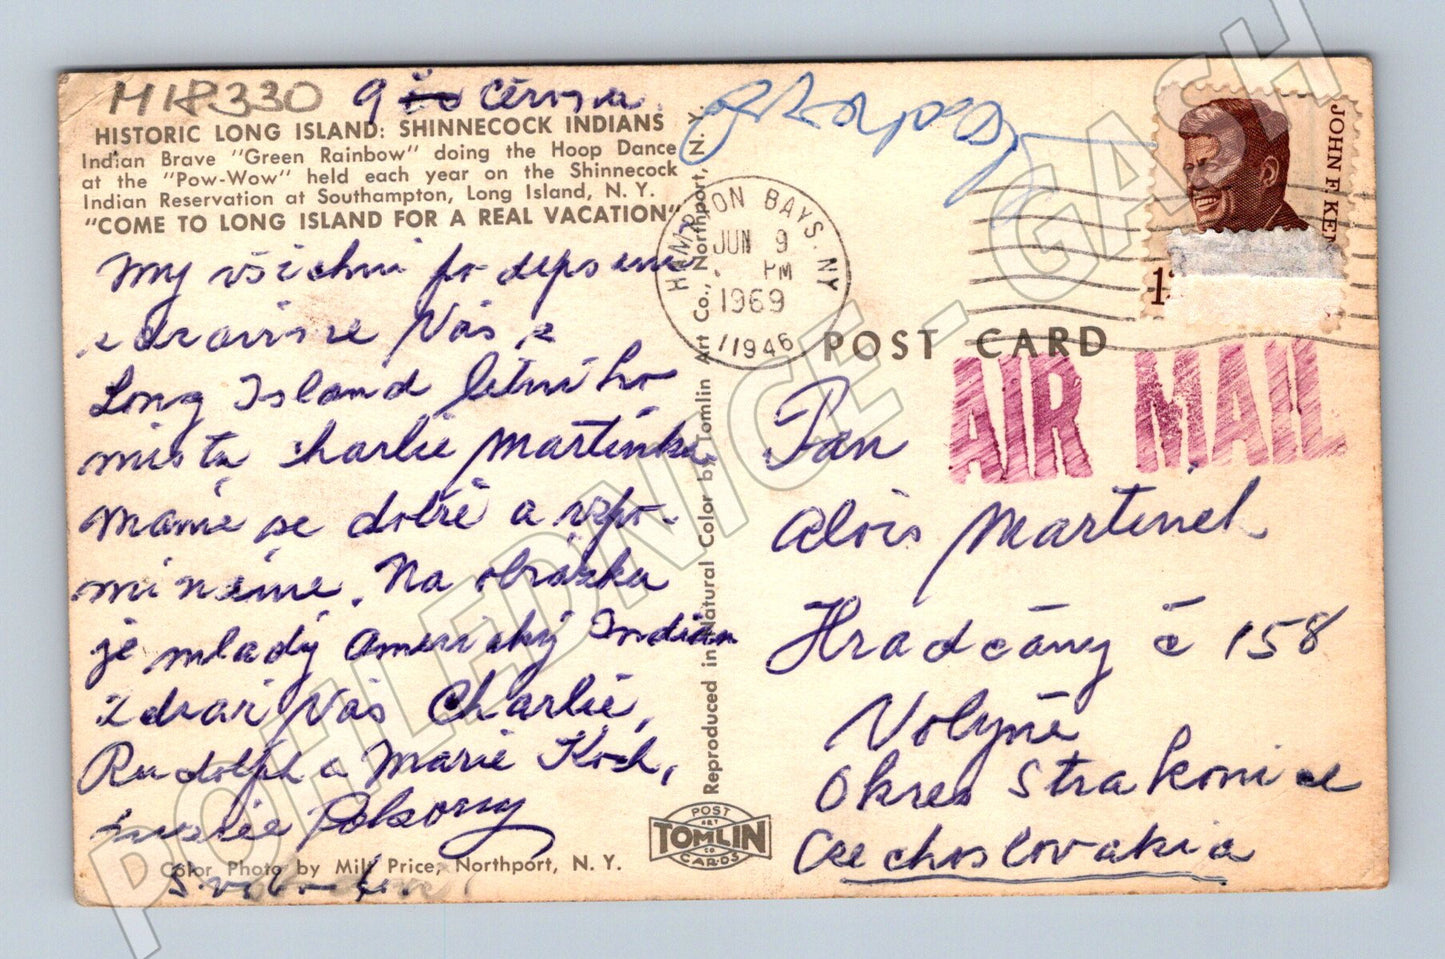 M18330 9 června
HISTORIC LONG ISLAND: SHINNECOCK INDIANS
Indian Brave "Green Rainbow" doing the Hoop Dance
at the "Pow-Wow" held each year on the Shinnecock
Indian Reservation at Southampton, Long Island, N. Y.
"COME TO LONG ISLAND FOR A REAL VACATION"
My všichni
zdravíme Vás z
Long Island letního
místa Charlie Martínka
máme se dobře a vzpo-
mínáme. Na obrázku
je mladý Americký Indian
zdraví Vás Charlie,
Rudolph a Marie Koch,
Color Photo by Milt Price, Northport, N. Y.
Reproduced in Natural Color by Tomlin Art Co., Northport, N. Y.
POST
ART
TOMLIN
CO
CARDS
HAMPTON BAYS. NY
JUN 9
PM
1969
11946
JOHN F. KEN
POST CARD
AIR MAIL
Pan
Alois Martinek
Hradčany č 158
Volyně
Okres Strakonice
Czechoslovakia
POHLEDNICE - GASH